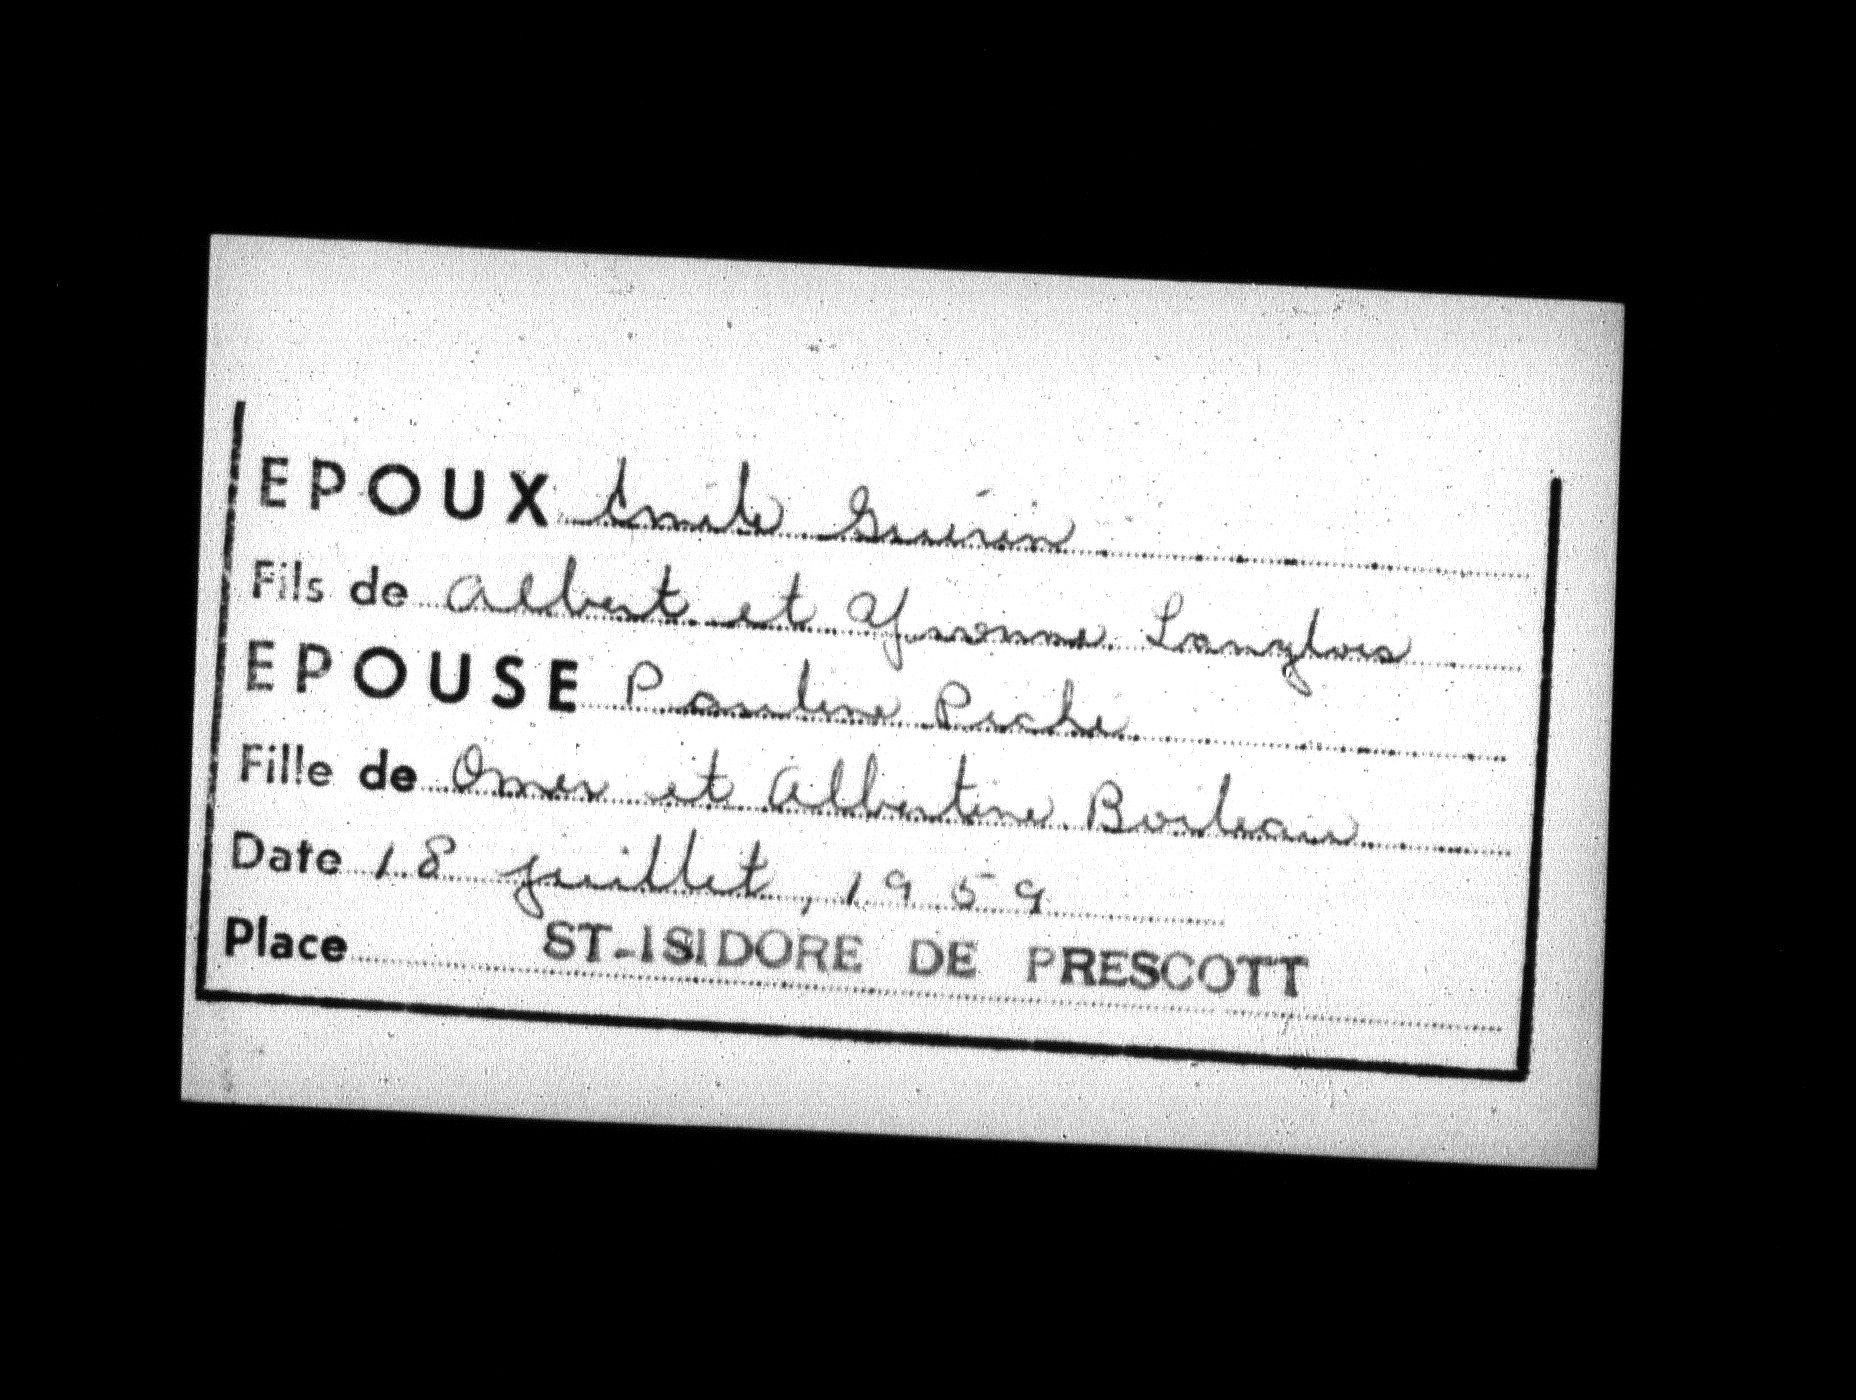 EPOUX Emile Guérin
Fils de Albert et Yvonne Langlois
EPOUSE Pauline Piché
Fille de Omer et Albertine Boileau
Date 18 juillet, 1959
Place ST-ISIDORE DE PRESCOTT